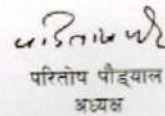 परितोष पौड्याल
अध्यक्ष